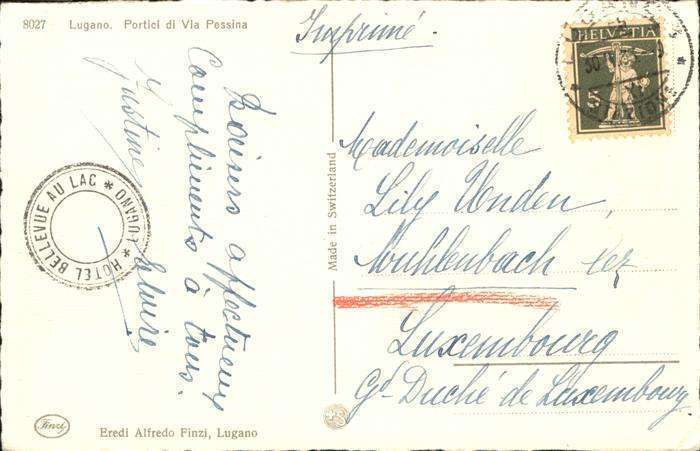 8027 Lugano. Portici di Via Pessina
Imprimé.
HELVETIA
5
Baisers affectueux
Compliments à tous.
Justine
Elvire
HOTEL BELLEVUE AU LAC * LUGANO *
Made in Switzerland
Mademoiselle
Lily Unden
Muhlenbach lez
Luxembourg
Gd- Duché de Luxembourg
Finzi
Eredi Alfredo Finzi, Lugano